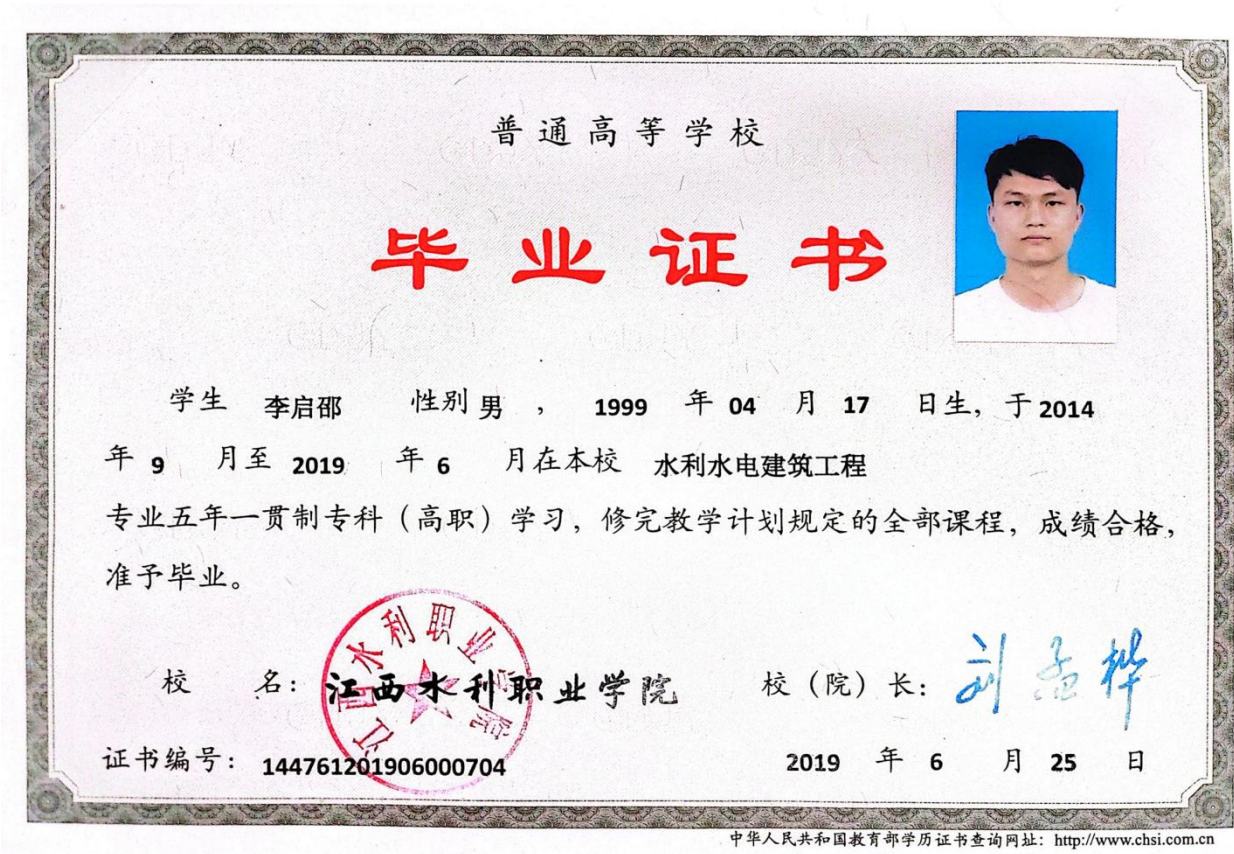 普通高等学校
毕业证书
学生 李启邵 性别 男 , 1999 年 04 月 17 日生, 于 2014
年 9 月至 2019 年 6 月在本校 水利水电建筑工程
专业五年一贯制专科（高职）学习, 修完教学计划规定的全部课程, 成绩合格,
准予毕业。
江西水利职业学院
校 名: 江西水利职业学院 校（院）长: 刘孟桦
证书编号: 144761201906000704 2019 年 6 月 25 日
中华人民共和国教育部学历证书查询网址: http://www.chsi.com.cn